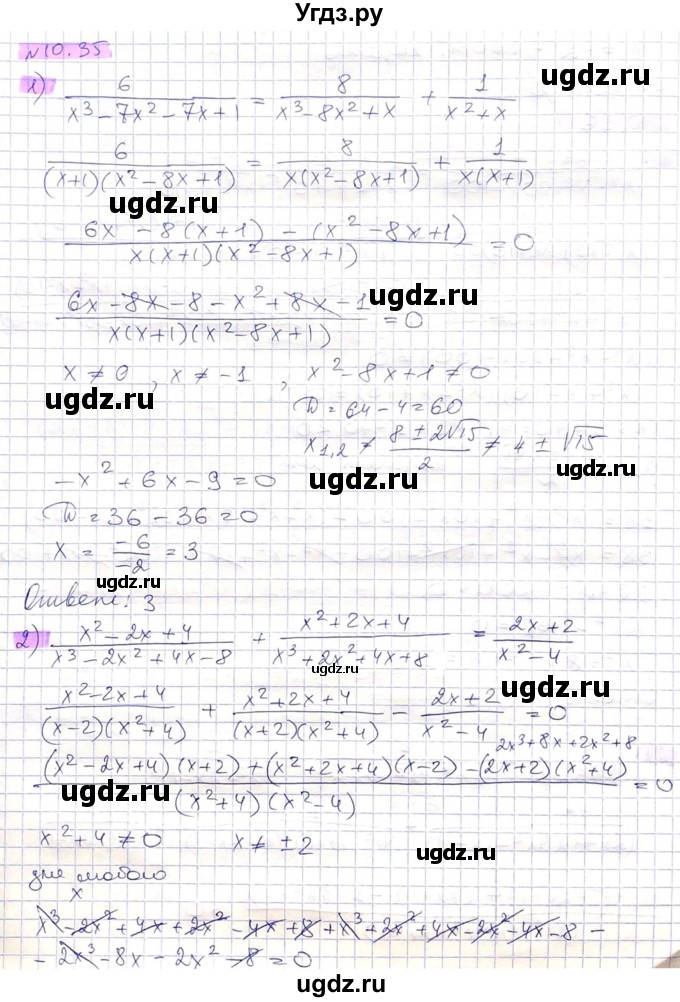 Угдз.ру
№10.35
ugdz.ru
1) 6/(x³ - 7x² - 7x + 1) = 8/(x³ - 8x² + x) + 1/(x² + x)
ugdz.ru
6/((x+1)(x² - 8x + 1)) = 8/(x(x² - 8x + 1)) + 1/(x(x+1))
ugdz.ru
ugdz.ru
(6x - 8(x+1) - (x² - 8x + 1))/(x(x+1)(x² - 8x + 1)) = 0
ugdz.ru
(6x - 8x - 8 - x² + 8x - 1)/(x(x+1)(x² - 8x + 1)) = 0
ugdz.ru
x ≠ 0 , x ≠ -1 , x² - 8x + 1 ≠ 0
ugdz.ru
D = 64 - 4 = 60
x₁,₂ ≠ (8 ± 2√15)/2 ≠ 4 ± √15
ugdz.ru
-x² + 6x - 9 = 0
ugdz.ru
D = 36 - 36 = 0
x = -6/-2 = 3
ugdz.ru
ugdz.ru
Ответ: 3
2) (x² - 2x + 4)/(x³ - 2x² + 4x - 8) + (x² + 2x + 4)/(x³ + 2x² + 4x + 8) = (2x + 2)/(x² - 4)
ugdz.ru
(x² - 2x + 4)/((x-2)(x² + 4)) + (x² + 2x + 4)/((x+2)(x² + 4)) - (2x + 2)/(x² - 4) = 0
ugdz.ru
2x³ + 8x + 2x² + 8
((x² - 2x + 4)(x+2) + (x² + 2x + 4)(x-2) - (2x+2)(x² + 4))/((x² + 4)(x² - 4)) = 0
ugdz.ru
ugdz.ru
x² + 4 ≠ 0 x ≠ ±2
ugdz.ru
для любого
x
ugdz.ru
x³ - 2x² + 4x + 2x² - 4x + 8 + x³ + 2x² + 4x - 2x² - 4x - 8 -
- 2x³ - 8x - 2x² - 8 = 0
ugdz.ru
ugdz.ru